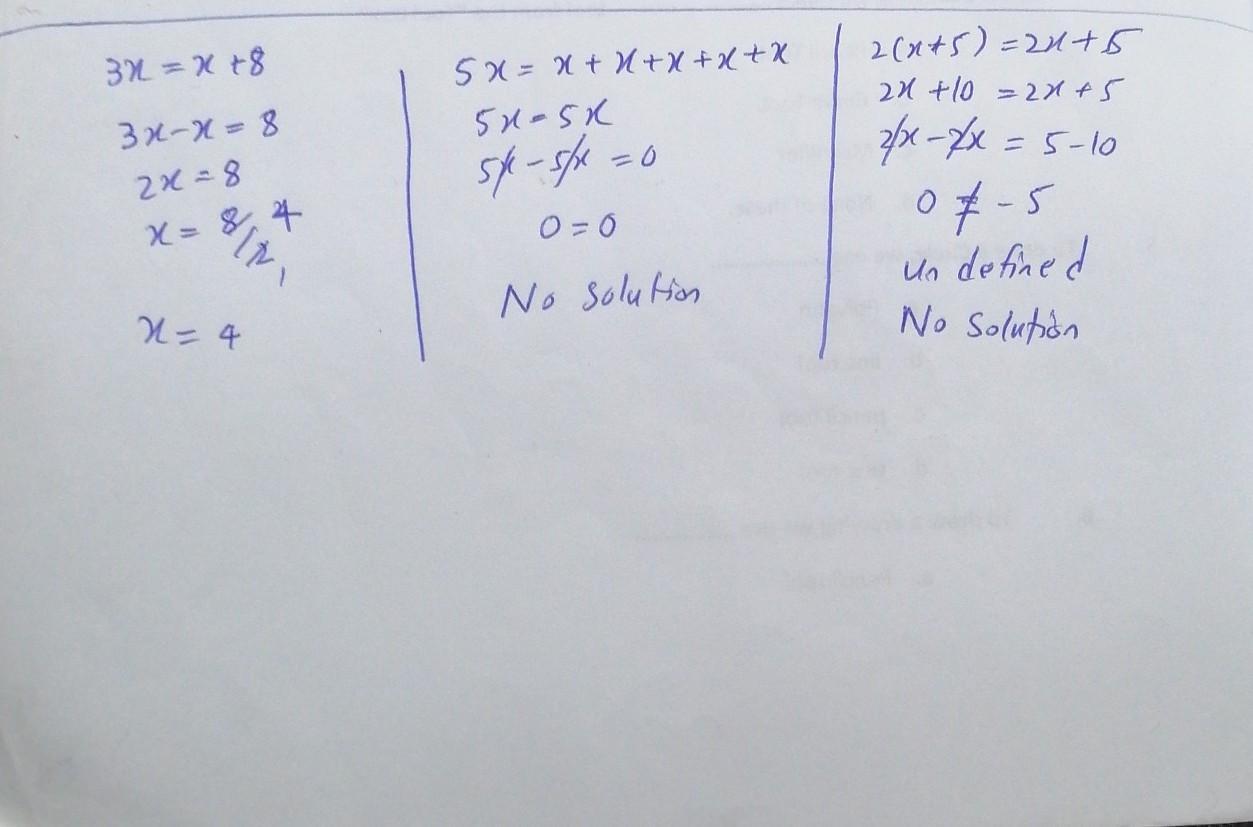 3x = x + 8
3x - x = 8
2x = 8
x = 8/2 4 1
x = 4
5x = x + x + x + x + x
5x = 5x
5x - 5x = 0
0 = 0
No solution
2(x+5) = 2x + 5
2x + 10 = 2x + 5
2x - 2x = 5 - 10
0 ≠ - 5
Un defined
No Solution